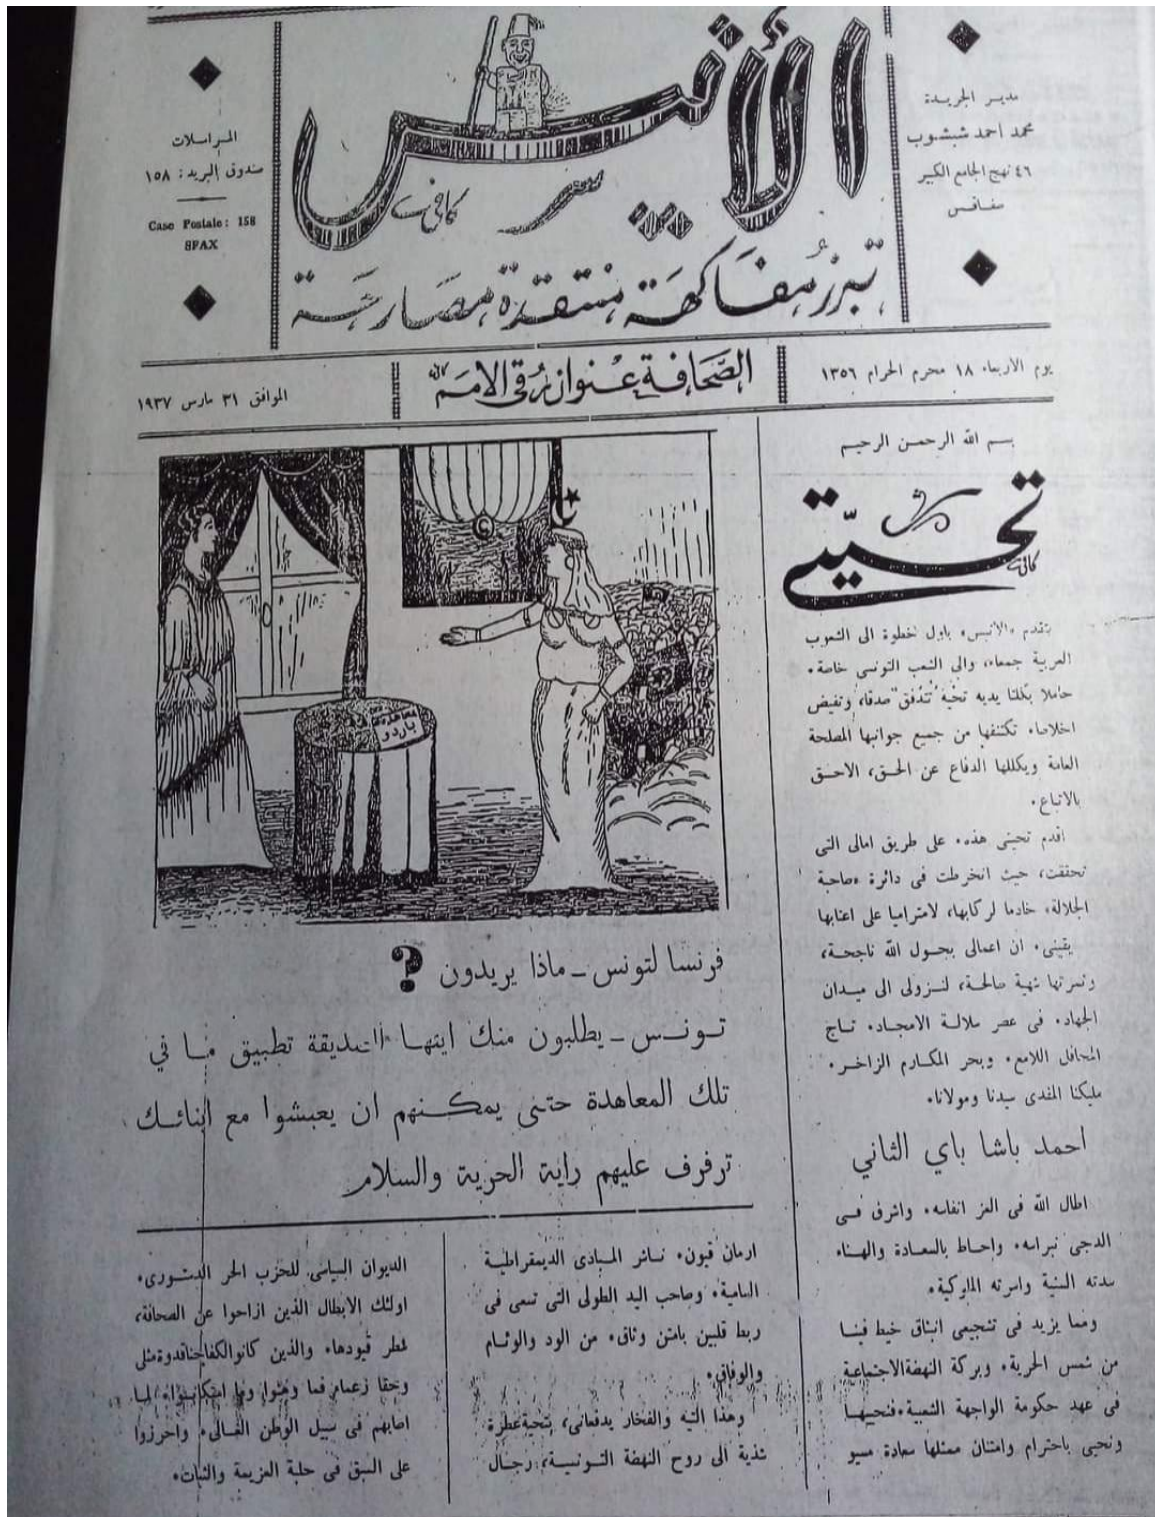 مدير الجريدة
محمد احمد شبشوب
٤٦ نهج الجامع الكبير
صفاقس
الأنيس
المراسلات
صندوق البريد: ١٥٨
Case Postale: 158
SFAX
تبرز مفاكهة منتقدة مصارحة
يوم الأربعاء ١٨ محرم الحرام ١٣٥٦
الصحافة عنوان رقي الامم
الموافق ٣١ مارس ١٩٣٧
بسم الله الرحمن الرحيم
تحيتي
يتقدم «الأنيس» باول خطوة الى الشعوب
العربية جمعاء، والى الشعب التونسى خاصة.
حاملا بكلتا يديه تحية تتدفق صدقا، وتفيض
اخلاصا. تكتنفها من جميع جوانبها المصلحة
العامة ويكللها الدفاع عن الحق، الاحق
بالاتباع.
اقدم تحيتى هذه. على طريق امالى التى
تحققت، حيث انخرطت فى دائرة «صاحبة
الجلالة» خادما لركابها، لامتراميا على اعتابها
يقينى. ان اعمالى بحول الله ناجحة،
وثمرتها شهية صالحة، لنزولى الى ميدان
الجهاد. فى عصر سلالة الامجاد. تاج
المحافل اللامع. وبحر المكارم الزاخر.
مليكنا المفدى سيدنا ومولانا.
احمد باشا باي الثاني
اطال الله فى العز انفاسه. واشرق فى
الدجى نبراسه. واحاط بالسعادة والهناء
سدته السنية واسرته الملوكية.
ومما يزيد فى تشجيعى انبثاق خيط فينا
من شمس الحرية. وبركة النهضة الاجتماعية
فى عهد حكومة الواجهة الشعبية. فنحييها
ونحيى باحترام وامتنان ممثلها سعادة مسيو
معاهدة
باردو
فرنسا لتونس ـ ماذا يريدون ?
تونس ـ يطلبون منك ايتها الصديقة تطبيق ما في
تلك المعاهدة حتى يمكنهم ان يعيشوا مع ابنائك
ترفرف عليهم راية الحرية والسلام
ارمان قيون. ناشر المبادى الديمقراطية
السامية. وصاحب اليد الطولى التى تسعى فى
ربط قلبين بامتن وثاق. من الود والوئام
والوفاق.
وهذا التيه والفخار يدفعانى، بتحية عطرة
شذية الى روح النهضة التونسية، رجال
الديوان السياسى للحزب الحر الدستورى.
اولئك الابطال الذين ازاحوا عن الصحافة،
قيودها. والذين كانوا لكفاحنا قدوة مثلى
وحقا زعماء فما وهنوا وما استكانوا لما
اصابهم فى سبيل الوطن الغالى. واحرزوا
على السبق فى حلبة العزيمة والثبات.